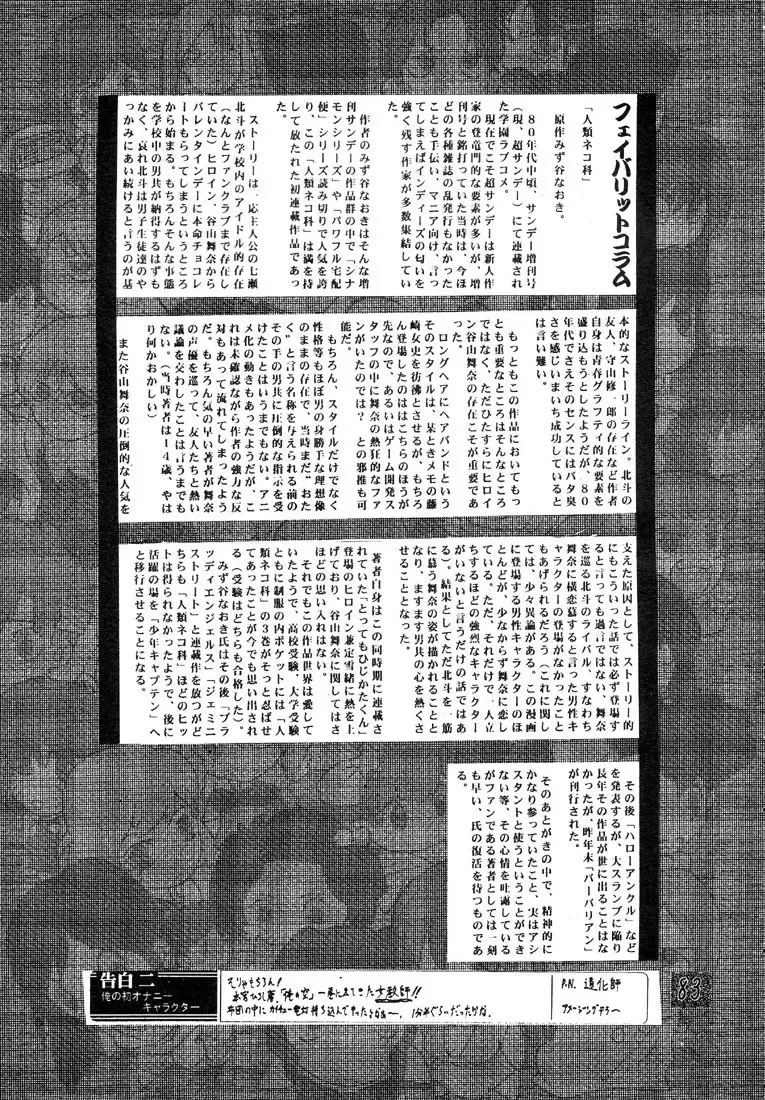 フェイバリットコラム
「人類ネコ科」
原作みず谷なおき。
８０年代中頃、サンデー増刊号
（現、超サンデー）にて連載され
た学園ラブコメ。
現在でこそ超サンデーは新人作
家の登竜門的な要素が多いが、増
刊号と銘打っていた当時は、今ほ
どの各種雑誌の乱発行もなかった
ことも手伝い、マニア向け、言っ
てしまえばインディーズの匂いを
強く残す作家が多数集結してい
た。
作者のみず谷なおきはそんな増
刊サンデーの作品群の中で「シナ
モンシリーズ」や「パワフル宅配
便」シリーズ読み切りで人気を誇
り、この「人類ネコ科」は満を持
して放たれた初連載作品であっ
た。
ストーリーは、一応主人公の七瀬
北斗が学校内のアイドル的存在
（なんとファンクラブまで存在し
ていた）ヒロイン、谷山舞奈から
バレンタインデーに本命チョコレ
ートもらってしまうというところ
から始まる。もちろんそんな事態
を学校中の男共が納得するはずも
なく、哀れ北斗は男子生徒達のや
っかみにあい続けると言うのが基
本的なストーリーライン。北斗の
友人、守山修一郎の存在など作者
自身は青春グラフティ的な要素を
盛り込もうとしたようだが、８０
年代でさえそのセンスにはバタ臭
さを感じいまいち成功していると
は言い難い。
もっともこの作品においてもっ
とも重要なところはそんなところ
ではなく、ただひたすらにヒロイ
ン谷山舞奈の存在こそが重要であ
った。
ロングヘアにヘアバンドという
そのスタイルは、某ときメモの藤
崎女史を彷彿とさせるが、もちろ
ん登場したのはこちらのほうが
先なので、あるいはゲーム開発ス
タッフの中に舞奈の熱狂的なファ
ンがいたのでは？　との邪推も可
能だ。
もちろん、スタイルだけでなく
性格等もほぼ男の身勝手な理想像
のままの存在で、当時まだ"おた
く"と言う名称を与えられる前の
その手の男共に圧倒的な指示を受
けたことはいうまでもない。アニ
メ化の動きもあったようだが、こ
れは未確認ながら作者の強力な反
対もあって流れてしまったよう
だ。もちろん気の早い著者が舞奈
の声優を巡って、友人たちと熱い
議論を交わしたことは言うまでも
ない。（当時著者は１４歳、やは
り何かおかしい）
また谷山舞奈の圧倒的な人気を
支えた原因として、ストーリー的
にもこういった話では必ず登場す
ると言っても過言ではない、舞奈
を巡る北斗のライバル、すなわち
舞奈に横恋慕すると言った男性キ
ャラクターの登場がなかったこと
もあげられるだろう（これに関し
ては、少々異論がある。この漫画
に登場する男性キャラクターのほ
とんどが、少なからず舞奈に恋し
ている。ただ、それだけで一人立
ちするほどの強烈なキャラクター
がいないと言うだけの話ではあ
る）。結果としてただ北斗を一筋
に慕う舞奈の姿が描かれることと
なり、ますます男共の心を熱くさ
せることとなった。
著者自身はこの同時期に連載さ
れていた「とってもひじかたくん」
登場のヒロイン兼定雪緒に熱を上
げており、谷山舞奈に関してはさ
ほどの思い入れはない。
それでもこの作品世界は愛して
いたようで、高校受験、大学受験
ともに制服の内ポケットには「人
類ネコ科」の３巻がそっと忍ばせ
てあったことが今でも思い出され
る（受験はどちらも合格した）。
みず谷なおき氏はその後「ブラ
ッディエンジェルズ」「ジェミニ
ストリート」と連載作を放つがど
ちらも「人類ネコ科」ほどのヒッ
トは得られなかったようで、後に
活躍の場を「少年キャプテン」へ
と移行させることになる。
その後「ハローアンクル」など
を発表するが、大スランプに陥り
長年その作品が世に出ることはな
かったが、昨年末「バーバリアン」
が刊行された。
そのあとがきの中で、精神的に
かなり参っていたこと、実はアシ
スタントと使うということができ
ない等、その心情を吐露している
がファンである著者としては一刻
も早い、氏の復活を待つものであ
る。
告白二
俺の初オナニー
キャラクター
そりゃもちろん！
本宮ひろし著、「俺の空」一巻に出てきた女教師!!
P.N. 道化師
83